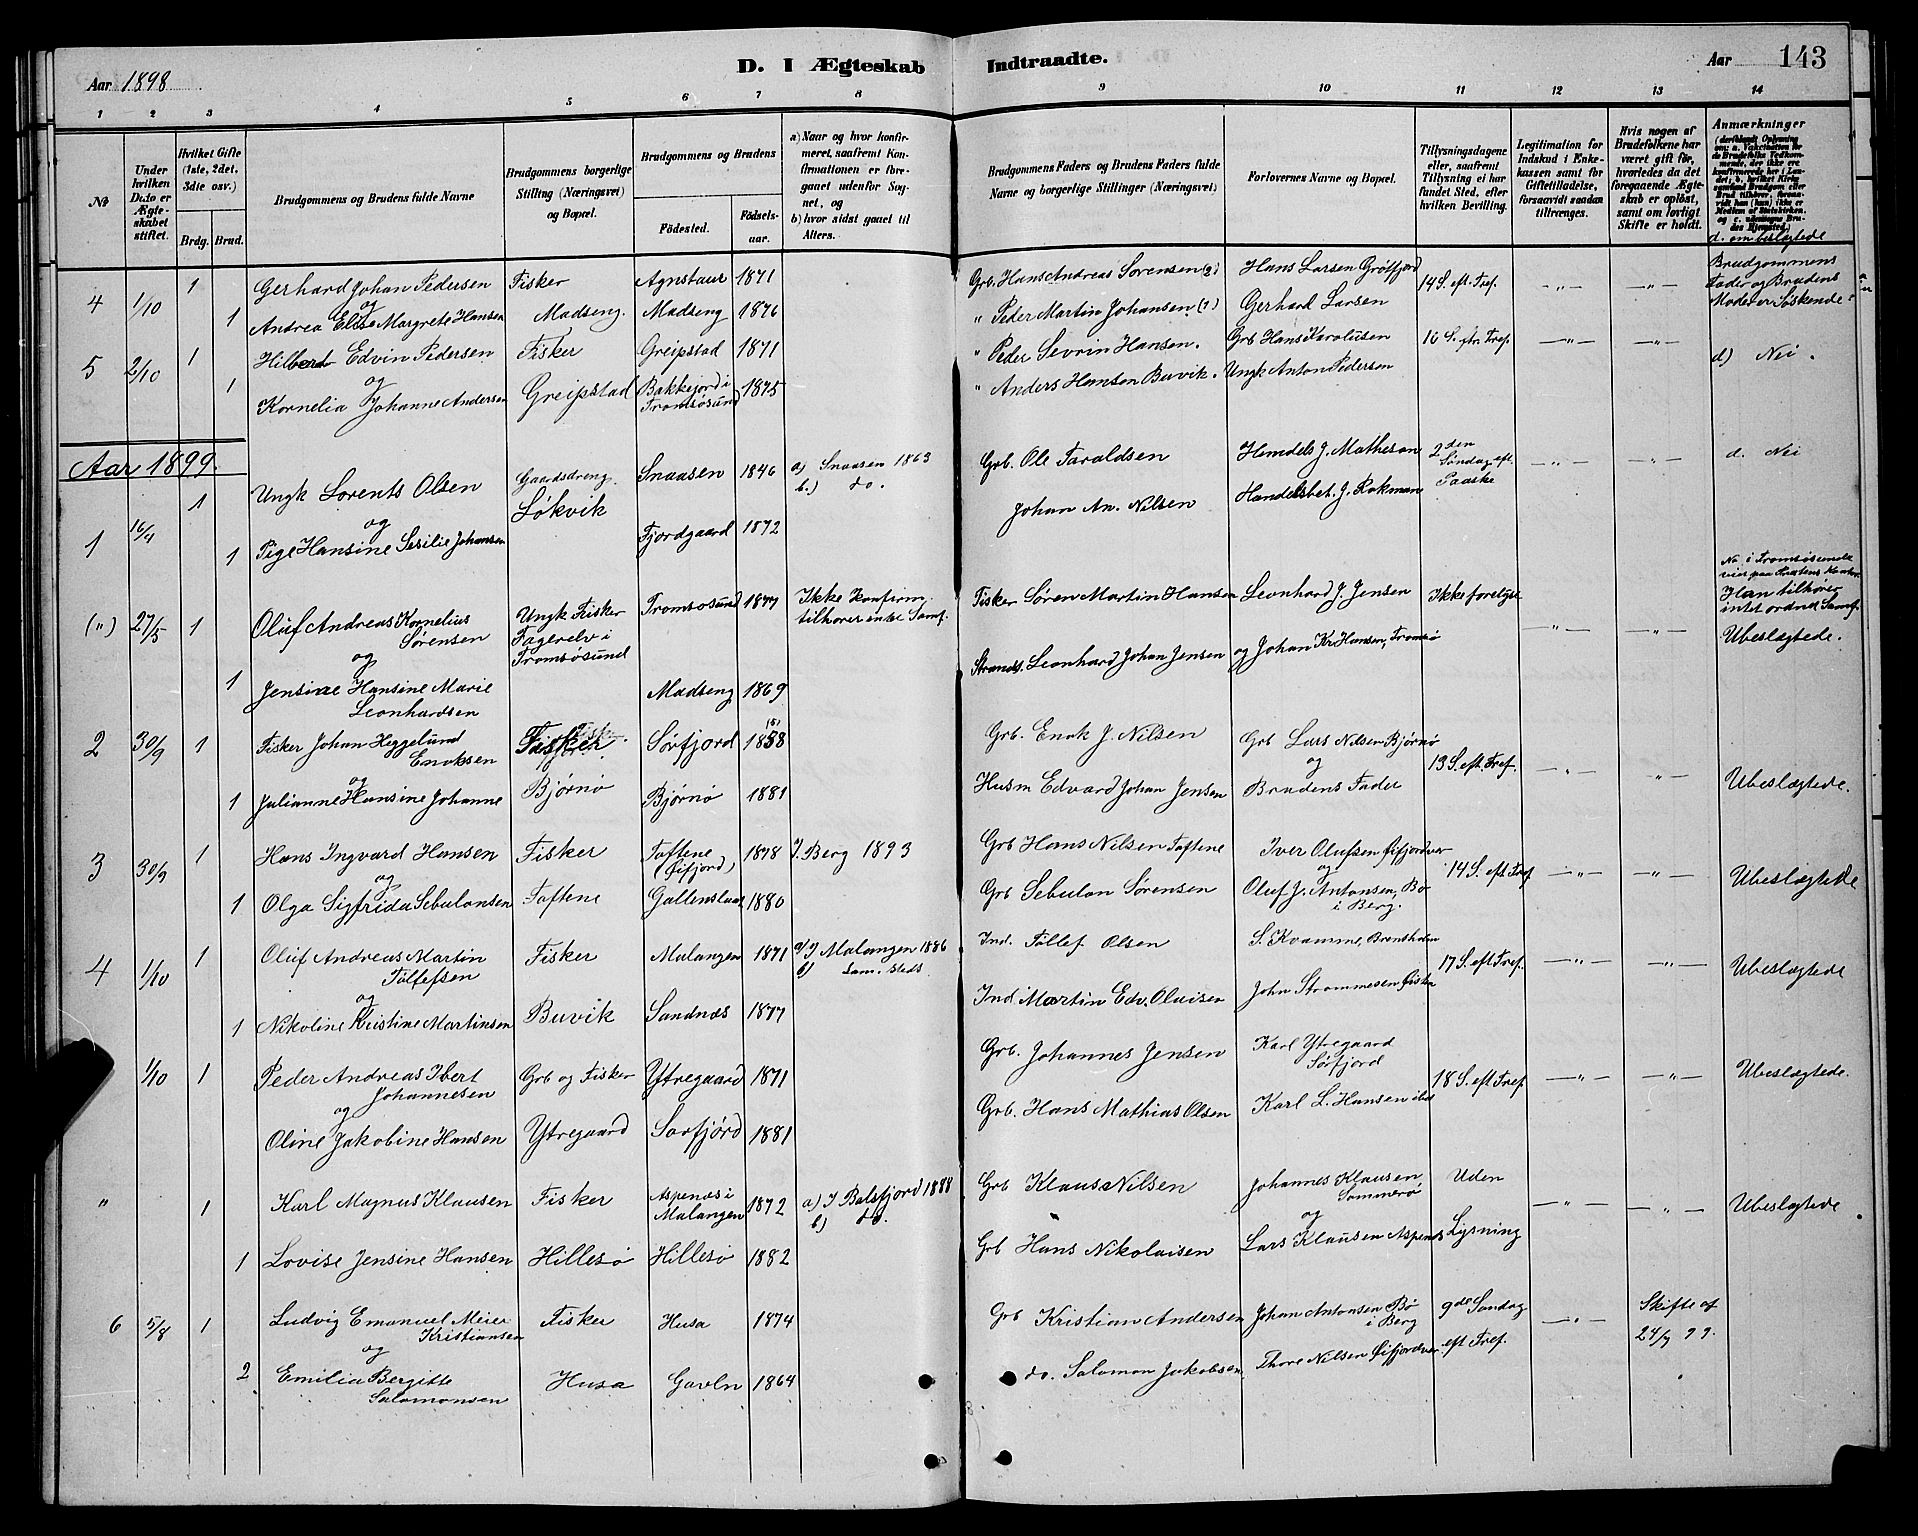 D. I Ægteskab Indtraadte.
Aar 1898
Aar 143
1 2 3 4 5 6 7 8 9 10 11 12 13 14
№
Under hvilken Dato er Ægteskabet stiftet.
Hvilket Gifte (1ste, 2det, 3die osv.)
Brdg. Brud.
Brudgommens og Brudens fulde Navne
Brudgommens borgerlige Stilling (Næringsvei) og Bopæl.
Brudgommens og Brudens
Födested. Födselsaar.
a) Naar og hvor konfirmeret, saafremt Konfirmationen er foregaaet udenfor Sognet, og
b) hvor sidst gaaet til Alters.
Brudgommens Faders og Brudens Faders fulde Navne og borgerlige Stillinger (Næringsvei)
Forlovernes Navne og Bopæl.
Tillysningsdagene eller, saafremt Tillysning ei har fundet Sted, efter hvilken Bevilling.
Legitimation for Indskud i Enkekassen samt for Giftetilladelse, forsaavidt saadan tiltrænges.
Hvis nogen af Brudefolkene har været gift för, hvorledes da det foregaaende Ægteskab er oplöst, samt om lovligt Skifte er holdt.
Anmærkninger
d. om beslægtede
4 1/10 1 Gerhard Johan Pedersen Fisker Agnstaur 1871 Grb. Hans Andreas Sørensen (2) Hans Larsen Grötfjord 14 S. eft. Tref. —"— —"— Brudgommens Fader og Brudens Moder er Søskende
og
1 Andrea Elise Margrete Hansen Madseng. Madseng 1876 " Peder Martin Johansen (1) Gerhard Larsen
5 2/10 1 Hilbert Edvin Pedersen Fisker Greipstad 1871 " Peder Sevrin Hansen. Grb Hans Karolusen 16 S. eftr. Tref. —"— —"— d) Nei.
og
1 Kornelia Johanne Andersen Greipstad Bakkejord i Tromsøsund 1875 " Anders Hansen Buvik. Ungk Anton Pedersen
Aar 1899.
1 16/4 1 Ungk Lorents Olsen Gaardsdreng. Løkvik Snaasen 1846 a) Snaasen 1863 b.) do. Grb. Ole Taraldsen Hendels J. Mathesan 2den Søndag eft. Paaske —"— —"— d. Nei
og
1 Pige Hansine Sesilie Johansen Fjordgaard 1872 Johan An. Nilsen Handelsbet. J. Rokman
(") 27/5 1 Oluf Andreas Kornelius Sørensen Ungk Fisker Fagerelv i Tromsøsund Tromsøsund 1877 Ikke konfirm. tilhører ente Samf. Fisker Søren Martin Hansen Leonhard J. Jensen Ikke forelyst —"— —"— Han tilhører intet ordnet Samf. Ubeslægtede.
og
1 Jensine Hansine Marie Leonhardsen Madseng 1869 Strands. Leonhard Johan Jensen og Johan Kr Hansen, Tromsø
2 30/9 1 Fisker Johan Heggelund Enoksen Fisker Sørfjord 1858 (5) Grb. Enok J. Nilsen Grb Lars Nilsen Bjørnø 13 S. eft. Tref. —"— —"— Ubeslægtede.
og
1 Julianne Hansine Johanne Bjørnø Bjørnø 1881 Husm Edvard Johan Jensen og Brudens Fader
3 30/9 1 Hans Ingvard Hansen Fisker Toftene (Øifjord) 1878 I Berg 1893 Grb Hans Nilsen Toftene Iver Olufsen Øifjordvær 14 S. eft Tref —"— —"— Ubeslægtede
og
1 Olga Sigfrida Sebulonsen Toftene 1880 Grb Sebulon Sørensen og Oluf J. Antonsen, Bø i Berg.
4 1/10 1 Oluf Andreas Martin Tollefsen Fisker Malangen 1871 a) I Malangen 1886 b) sam. Steds. Ind. Tollef Olsen S. Kvamme, Brensholm 17 S. eft Tref. —"— —"— Ubeslægtede
og
1 Nikoline Kristine Martinsen Buvik Sandnæs 1877 Ind. Martin Edv. Oluisen John Strommesen
1/10 1 Peder Andreas Ibert Johannesen Grb og Fisker Ytregaard 1871 Grb. Johannes Jensen Karl Ytregaard Sørfjord 18 S. eft Tref —"— —"— Ubeslægtede.
og
Oline Jakobine Hansen Ytregaard Sørfjord 1881 Grb. Hans Mathias Olsen Karl L. Hansen ibd
" 1 Karl Magnus Klausen Fisker Aspenæs i Malangen 1872 a) I Balsfjord 1888 b) do. Grb Klaus Nilsen Johannes Klausen, Sommerø Uden Lysning —"— —"— Ubeslægtede
1 Lovise Jensine Hansen Hillesø Hillesø 1882 Grb Hans Nikolaisen og Lars Klausen Aspenæs
6 5/8 1 Ludvig Emanuel Meier Kristiansen Fisker Husa 1874 Grb Kristian Andersen Johan Antonsen Bø i Berg 9de Søndag eft Tref. —"— Skifte af 24/7 99.
og
2 Emilia Bergitte Salomonsen Husa 1864 do. Salomon Jakobsen Thore Nilsen Øifjordvær